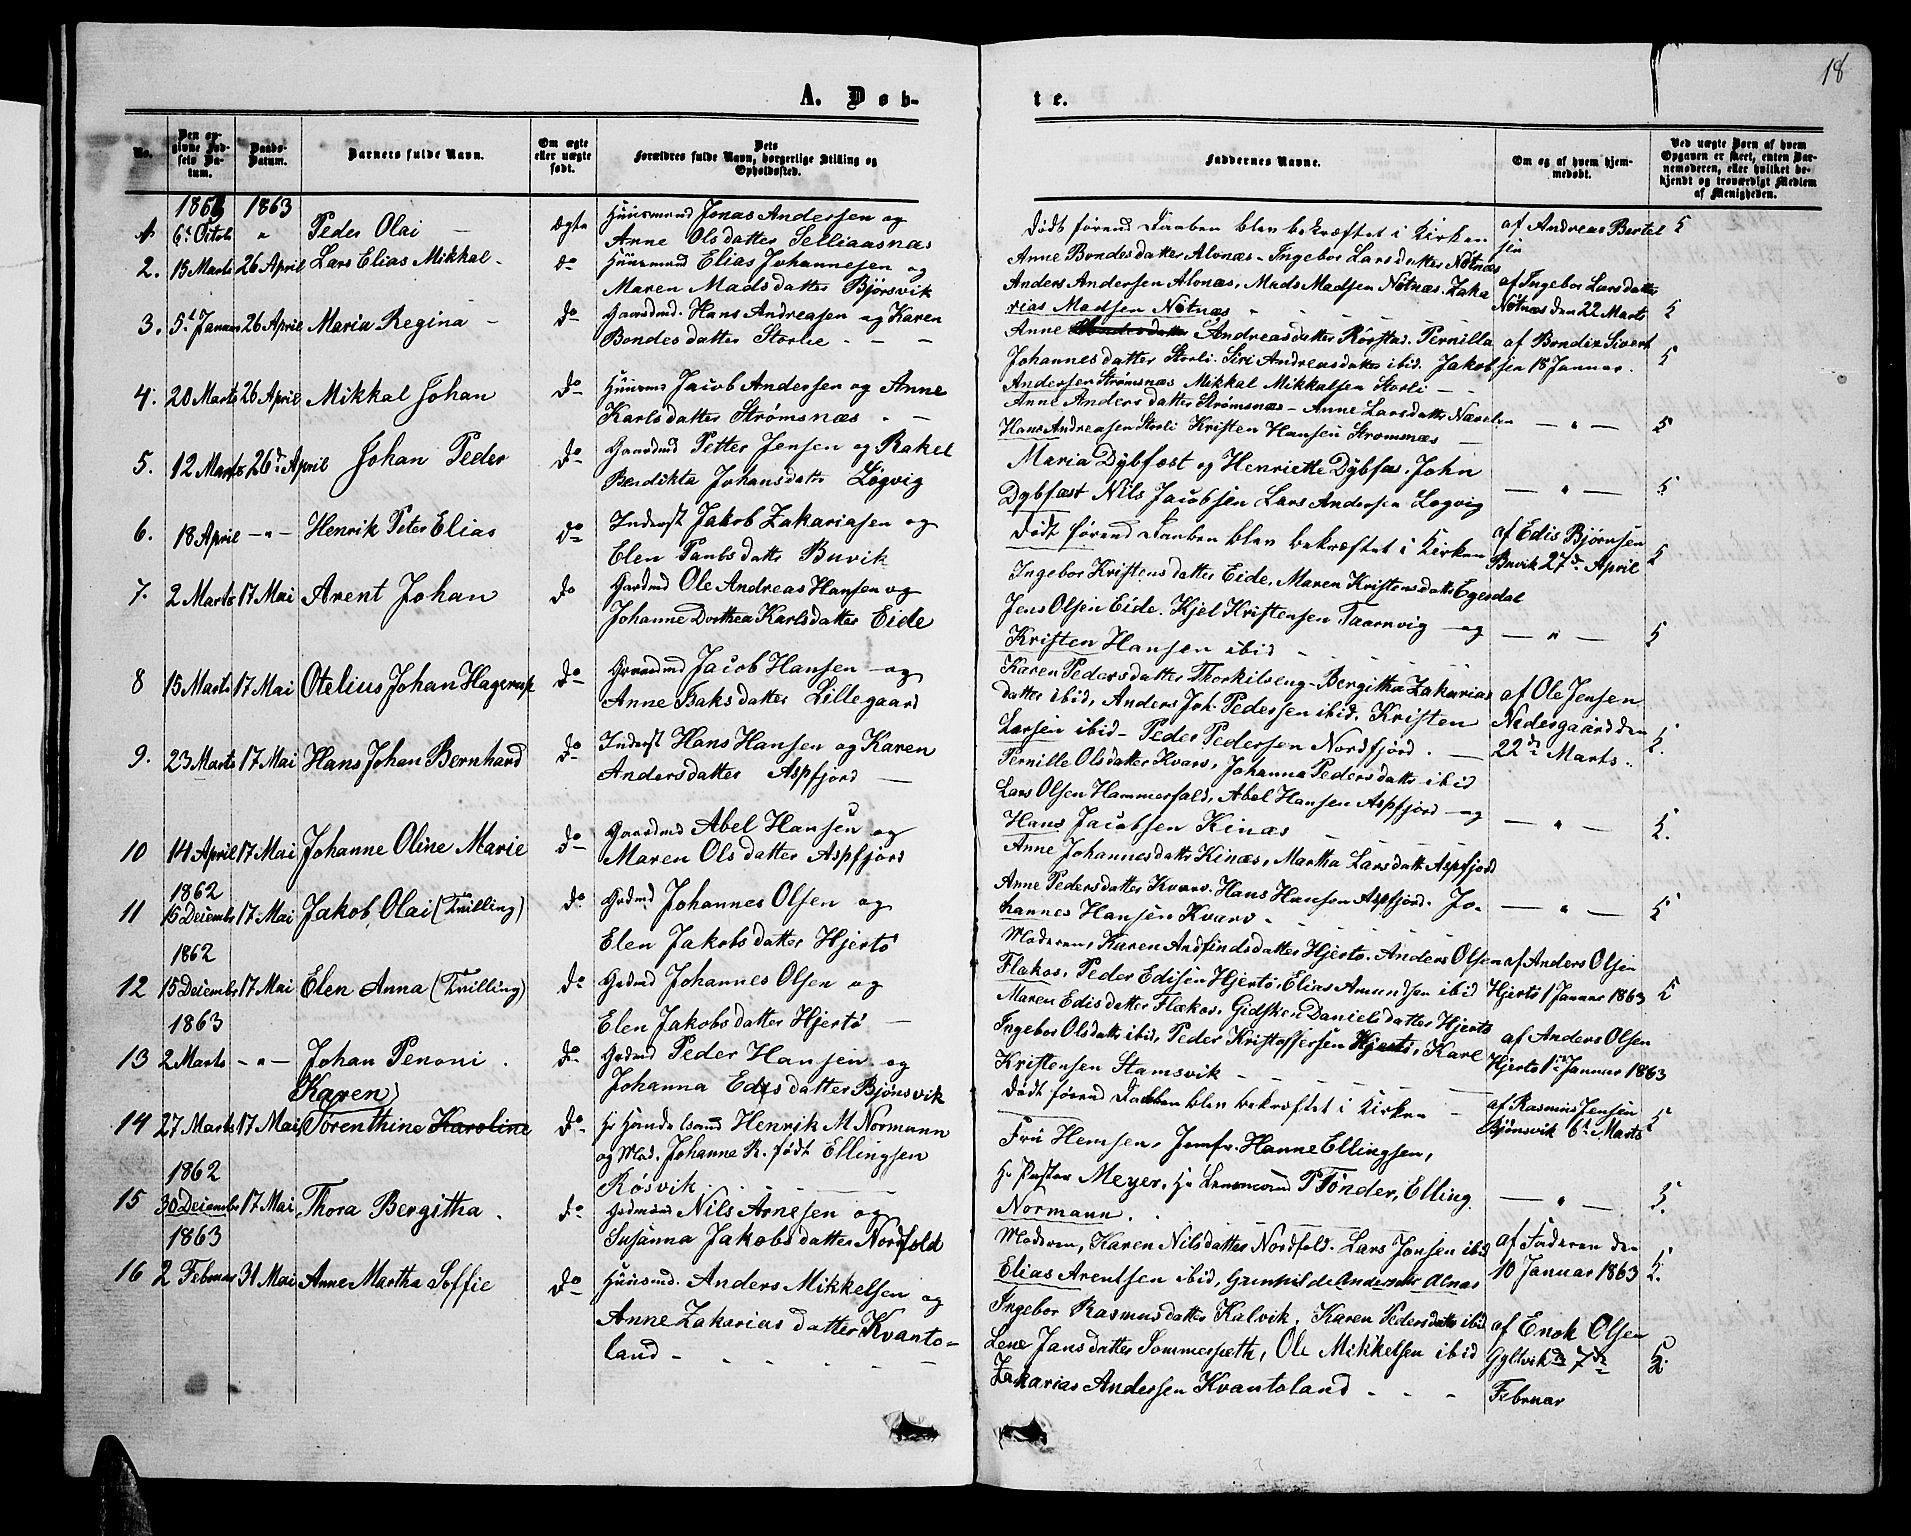 18
A. Døb-
te.
No.
Den opgivne Fødsels Datum.
Daabs-Datum.
Barnets fulde Navn.
Om ægte eller uægte født.
Forældres fulde Navn, borgerlige Stilling og Opholdssted.
Faddernes Navne.
Om og af hvem hjemmedøbt.
Ved uægte Børn af hvem Opgaven er skeet, enten Barnemoderen, eller hvilket bekjendt og troværdigt Medlem af Menigheden.
1863 1863
1. 6t Octob " Peder Olai - ægte Huusmand Jonas Andersen og
Anne Olsdatter Selliaasnæs
Dødt førend Daaben blev bekræftet i Kirken
af Andreas Bertel
sen
2. 15 Marts 26 April Lars Elias Mikkal - do Huusmand Elias Johannesen og
Maren Madsdatter Bjørsvik
Anne Bondesdatter Alvnæs - Ingebor Larsdatter Nøtnæs
Anders Andersen Alvnæs, Mads Madsen Nøtnæs. Zaka
rias Madsen Nøtnæs
af Ingebor Larsdatter
Nøtnæs den 22 Marts
3. 5t Januar 26 April Maria Regina - do Gaardmd. Hans Andreasen og Karen
Bondesdatter Storlie - - -
Anne Andreasdatter Rørstad. Pernilla
Johannesdatter Storli. Siri Andreasdatter ibid. Jakob
Andersen Strømsnæs Mikkal Mikkalsen Storli -
af Bondix Sivert
sen 18 Januar.
4. 20 Marts 26 April Mikkal Johan do Huusm Jacob Andersen og Anne
Karlsdatter Strømsnæs - -
Anne Andersdatter Strømsnæs - Anne Larsdatter Nævelsn
Hans Andreasen Storli Kristen Hansen Strømsnæs -
- " -
5. 12 Marts 26d April Johan Peder do Gaardmd Petter Jensen og Rakel
Berdikta Johansdatter Løgvig
Maria Dybfæst og Henriette Dybfæs. John
Dybfæst Nils Jacobsen Lars Andersen Løgvig
- " -
6. 18 April - " - Henrik Peter Elias do Inderst Jakob Zakariasen og
Elen Paulsdatter Buvik
Dødt førend Daaben blev bekræftet i Kirken
af Edis Bjørnsen
Buvik 27de April
7. 2 Marts 17 Mai Arent Johan do Gardmd Ole Andreas Hansen og
Johanne Dorthea Karlsdatter Eide
Ingebor Kristensdatter Eide, Maren Kristensdatter Egesdal
Jens Olsen Eide. Kjel Kristensen Taarnvig - og
Kristen Hansen ibid - - - -
- " -
8 15 Marts 17 Mai Otelius Johan Hagerup do Gaardmd Jacob Hansen - og
Anne Isaksdatter Lillegaard
Karen Pedersdatter Thorkilseng - Bergitha Zakarias
datter ibid, Anders Joh. Pedersen ibid. Kristen
Larsen ibid - Peder Pedersen Nordfjord. -
af Ole Jensen
Nedegaard den
22de Marts.
9. 23 Marts 17 Mai Hans Johan Bernhard do Inderst Hans Hansen og Karen
Andersdatter Aspfjord -
Pernille Olsdatter Kvarv, Johanna Pedersdatter ibid
Lars Olsen Hammerfald, Abel Hansen Aspfjord - og
Hans Jacobsen Kinæs -
- " -
10 14 April 17 Mai Johanne Oline Marie do Gaardmd Abel Hansen og
Maren Olsdatter Aspfjord
Anne Johannesdatter Kinæs, Martha Larsdatt Aspfjord
Anne Pedersdatter Kvarv. Hans Hansen Aspfjord. Jo-
hannes Hansen Kvarv -
- " -
1862
11 15 Decembr 17 Mai Jakob Olai (Tvilling) do Grdmd Johannes Olsen og
Elen Jakobsdatter Hjertø
Moderen, Karen Andfindsdatter Hjertø. Anders Olsen
Flakos, Peder Edisen Hjertø, Elias Amundsen ibid
af Anders Olsen
Hjertø 1 Januar 1863
1862
12 15 Decembr 17 Mai Elen Anna (Tvilling) do Grdmd Johannes Olsen og
Elen Jakobsdatter Hjertø -
Maren Edisdatter Flakos, Gidsken Danielsdatter Hjertø
Ingebor Olsdatter ibid, Peder Kristoffersen Hjertø, Karl
Kristensen Stamsvik - - -
af Anders Olsen
Hjertø 1ste Januar 1863
1863
13 2 Marts - " - Johan Penoni. do Grdmd Peder Hansen og
Johanna Edisdatter Bjønsvik
Dødt førend Daaben blev bekræftet i Kirken -
af Rasmus Jensen
Bjønsvik 6te Marts
(Karen)
14 27 Marts 17 Mai Torenthine Karoline do Hr Handelsmd Henrik M Normann
og Mad. Johanne R. født Ellingsen
Røsvik
Fru Hemsen, Jomfr. Hanne Ellingsen,
Hr Pastor Meyer, Hr Lensmand P Tønder, Elling
Normann.
- " -
1862
15 30 Decembr 17 Mai Thora Bergitha. do Grdmand Nils Arnesen og
Susanna Jakobsdatter Nordfold
Moderen, Karen Nilsdatter Nordfold. Lars Jonsen ibid
Elias Arentsen ibid, Gunhilde Andersdtr Alnæs
af Faderen den
10 Januar 1863
1863
16 2 Februar 31 Mai Anne Martha Soffie do Huusmd. Anders Mikkelsen og
Anne Zakariasdatter Kvanto-
land - - - -
Ingebor Rasmusdatter Kalvik, Karen Pedersdatter ibid
Lene Jansdatter Sommersæth, Ole Mikkelsen ibid
Zakarias Andersen Kvantoland - - -
af Enok Olsen
Gyltvik d 7de
Februar